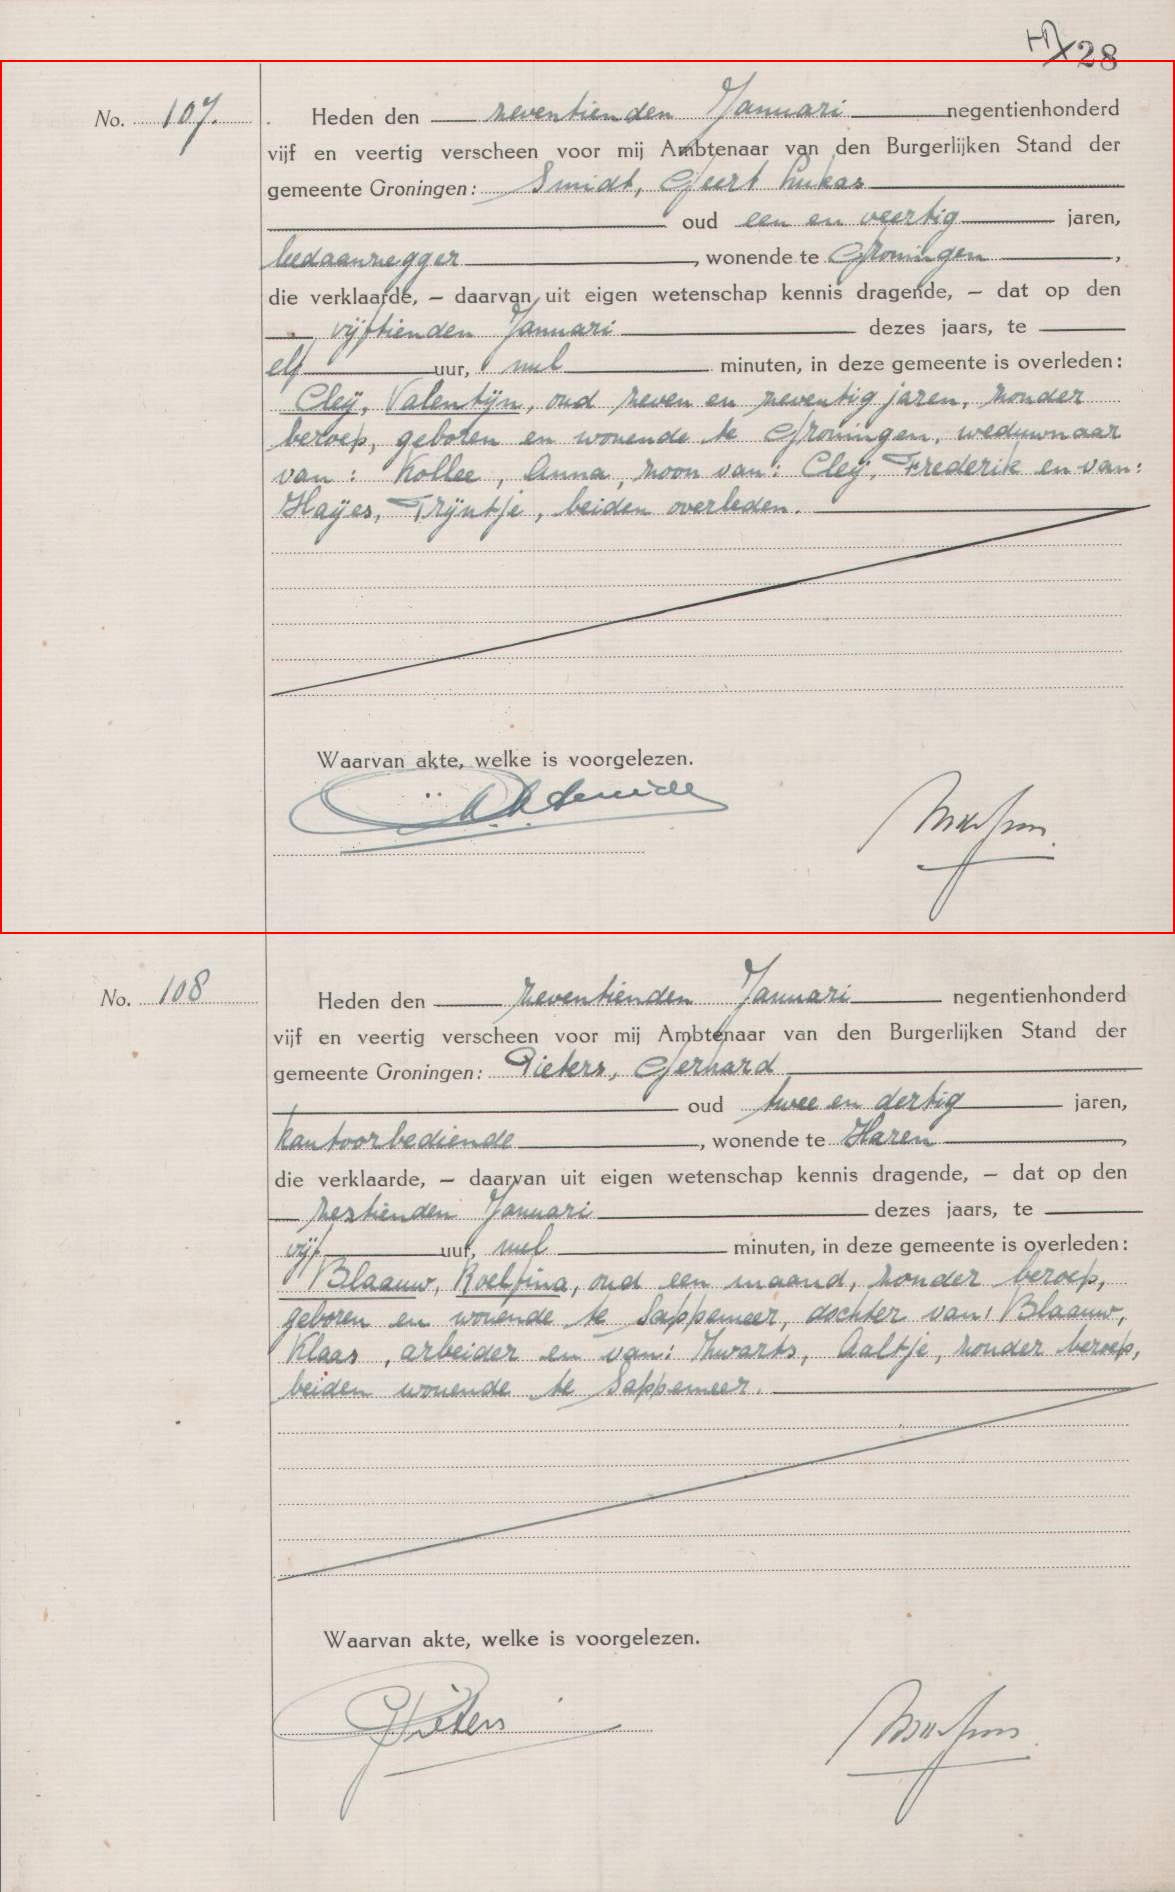 28
No. 107.
Heden den zeventienden Januari negentienhonderd
vijf en veertig verscheen voor mij Ambtenaar van den Burgerlijken Stand der
gemeente Groningen: Smidt, Geert Lukas
oud een en veertig jaren,
leedaanzegger, wonende te Groningen,
die verklaarde, – daarvan uit eigen wetenschap kennis dragende, – dat op den
vijftienden Januari dezes jaars, te
elf uur, nul minuten, in deze gemeente is overleden:
Cleÿ, Valentijn, oud zeven en zeventig jaren, zonder
beroep, geboren en wonende te Groningen, weduwnaar
van: Kollee, Anna, zoon van: Cleÿ, Frederik en van:
Haÿes, Trijntje, beiden overleden.
Waarvan akte, welke is voorgelezen.
No. 108
Heden den zeventienden Januari negentienhonderd
vijf en veertig verscheen voor mij Ambtenaar van den Burgerlijken Stand der
gemeente Groningen: Pieters, Gerhard
oud twee en dertig jaren,
kantoorbediende, wonende te Haren,
die verklaarde, – daarvan uit eigen wetenschap kennis dragende, – dat op den
zestienden Januari dezes jaars, te
vijf uur, nul minuten, in deze gemeente is overleden:
Blaauw, Roelfina, oud een maand, zonder beroep,
geboren en wonende te Sappemeer, dochter van: Blaauw,
Klaas, arbeider en van: Zwarts, Aaltje, zonder beroep,
beiden wonende te Sappemeer.
Waarvan akte, welke is voorgelezen.
GPieters